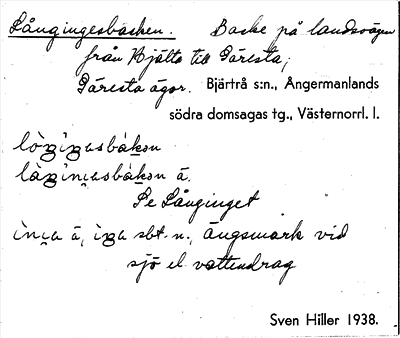 Långingesbacken. Backe på landsvägen
från Hjälta till Päresta;
Päresta ägor. Bjärtrå s:n., Ångermanlands
södra domsagas tg., Västernorrl. l.
Se Långinget
sbt. n., ängsmark vid
sjö el. vattendrag
Sven Hiller 1938.